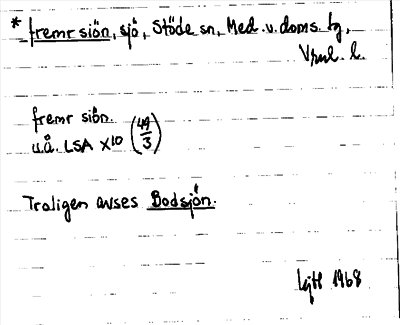 * fremr siön, sjö, Stöde sn, Med. v. doms. tg,
l.
fremr siön.
u.å. LSA X10 (49/3)
Troligen avses Bodsjön.
1968